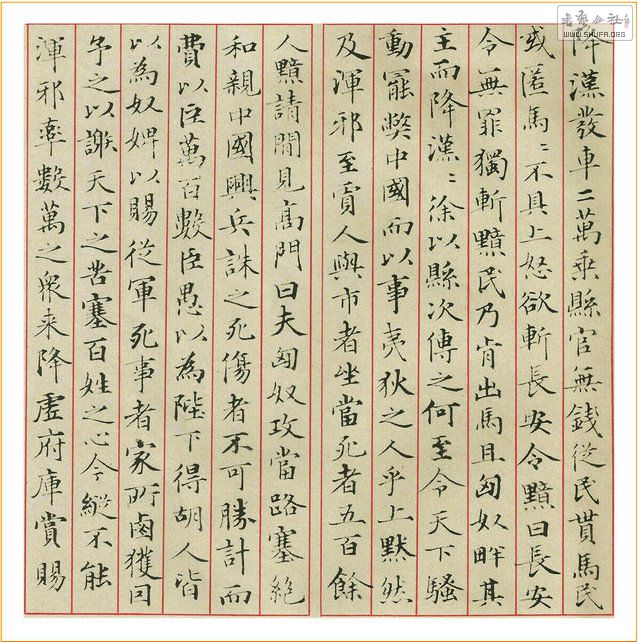 降漢發車二萬乘縣官無錢從民貰馬民
或匿馬〻不具上怒欲斬長安令黯曰長安
令無罪獨斬黯民乃肯出馬且匈奴畔其
主而降漢〻徐以縣次傳之何至令天下騷
動罷弊中國而以事夷狄之人乎上默然
及渾邪至賈人與市者坐當死者五百餘
人黯請閒見高門曰夫匈奴攻當路塞絕
和親中國興兵誅之死傷者不可勝計而
費以巨萬百數臣愚以為陛下得胡人皆
以為奴婢以賜從軍死事者家所鹵獲因
予之以謝天下之苦塞百姓之心今縱不能
渾邪率數萬之眾来降虛府庫賞賜
書藝公社
WWW.SHUFA.ORG